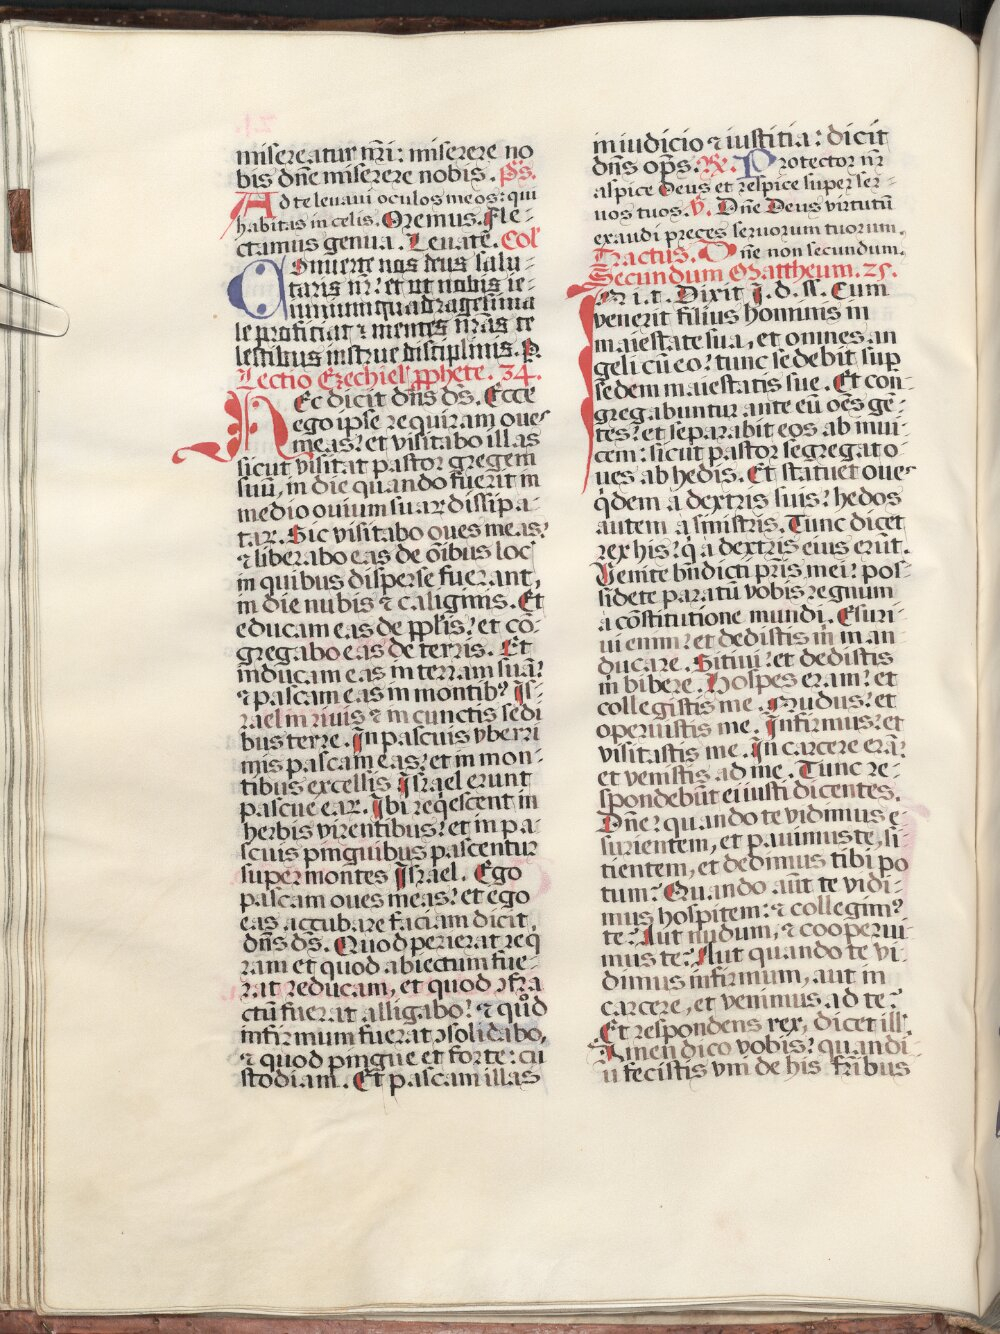 misereatur nr̄i: miserere no
bis dn̄e miserere nobis. p̄s.
Ad te leuaui oculos meos: qui
habitas in celis. Oremus. Fle-
ctamus genua. Leuate. Col
Conuerte nos deus salu-
taris nr̄: et ut nobis ie-
iunium quadragesima
le proficiat ⁊ mentes nr̄as ce
lestibus instrue disciplinis. P.
Lectio Ezechiel ꝓphete. 34.
Hec dicit dn̄s ds̄. Ecce
ego ipse requiram oues
meas: et visitabo illas
sicut visitat pastor gregem
suū, in die quando fuerit in
medio ouium suaꝝ dissipa-
taꝝ. Sic visitabo oues meas:
⁊ liberabo eas de oībus loc
in quibus disperse fuerant,
in die nubis ⁊ caliginis. Et
educam eas de ppl̄is: et cō-
gregabo eas de terris. Et
inducam eas in terram suā:
⁊ pascam eas in montib⁹ Is-
rael in riuis ⁊ in cunctis sedi
bus terre. In pascuis vberri
mis pascam eas: et in mon-
tibus excelsis Israel erunt
pascue eaꝝ. Ibi reqescent in
herbis virentibus: et in pa-
scuis pinguibus pascentur
super montes Israel. Ego
pascam oues meas: et ego
eas accubare faciam dicit
dn̄s ds̄. Quod perierat req
ram et quod abiectum fue-
rat reducam, et quod ↄfra
ctū fuerat alligabo: ⁊ qͦd
infirmum fuerat ↄsolidabo,
⁊ quod pingue et forte: cu
stodiam. Et pascam illas
in iudicio ⁊ iustitia: dicit
dn̄s op̄s. ℟. Protector nr̄
aspice Deus et respice super ser-
uos tuos. ℣. Dn̄e Deus virtutū
exaudi preces seruorum tuorum.
Tractus. Dn̄e non secundum.
Secundum Mattheum. 25.
In i. t. Dixit J. d. ss. Cum
venerit filius hominis in
maiestate sua, et omnes an
geli cū eo: tunc sedebit sup
sedem maiestatis sue. Et con-
gregabuntur ante eū oēs gē-
tes: et separabit eos ab inui-
cem: sicut pastor segregat o-
ues ab hedis. Et statuet oues
qdem a dextris suis: hedos
autem a sinistris. Tunc dicet
rex his: q a dextris eius erūt.
Venite bn̄dicti pr̄is mei: pos-
sidete paratū vobis regnum
a cōstitutione mundi. Esuri-
ui enim: et dedistis m̄ man-
ducare. Sitiui: et dedistis
m̄ bibere. Hospes eram: et
collegistis me. Nudus: et
operuistis me. Infirmus: et
visitastis me. In carcere erā:
et venistis ad me. Tunc re-
spondebūt ei iusti dicentes.
Dn̄e: quando te vidimus e-
surientem, et pauimus te, si-
tientem, et dedimus tibi po
tum: Quando aūt te vidi-
mus hospitem: ⁊ collegim⁹
te: Aut nudum, ⁊ cooperui-
mus te: Aut quando te vi-
dimus infirmum, aut in
carcere, et venimus ad te?
Et respondens rex, dicet ill.
Amen dico vobis: quandi-
u fecistis vni de his fr̄ibus